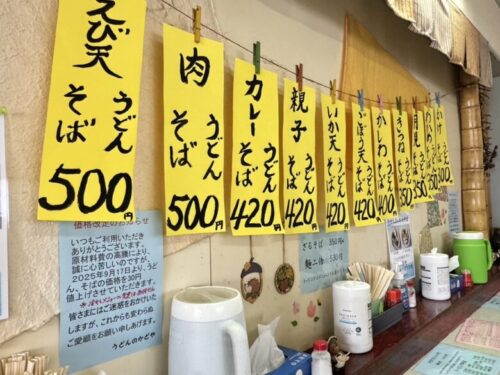 えび天
うどん
そば
500円
肉
うどん
そば
500円
カレー
うどん
そば
420円
親子
うどん
そば
420円
いか天
うどん
そば
420円
ごぼう天
うどん
そば
420円
かしわ
うどん
そば
400円
きつね
うどん
そば
月見
うどん
そば
350円
価格改定のお知らせ
いつもご利用いただき
ありがとうございます。
原材料費の高騰により、
誠に心苦しいのですが、
2025年9月17日より、うど
ん、そばの価格を30円、
値上げさせていただきます。
皆さまにはご迷惑をおかけいた
しますが、これからも変わらぬ
ご愛顧をお願い申しあげます。
うどんのかどや
ざるそば 350円